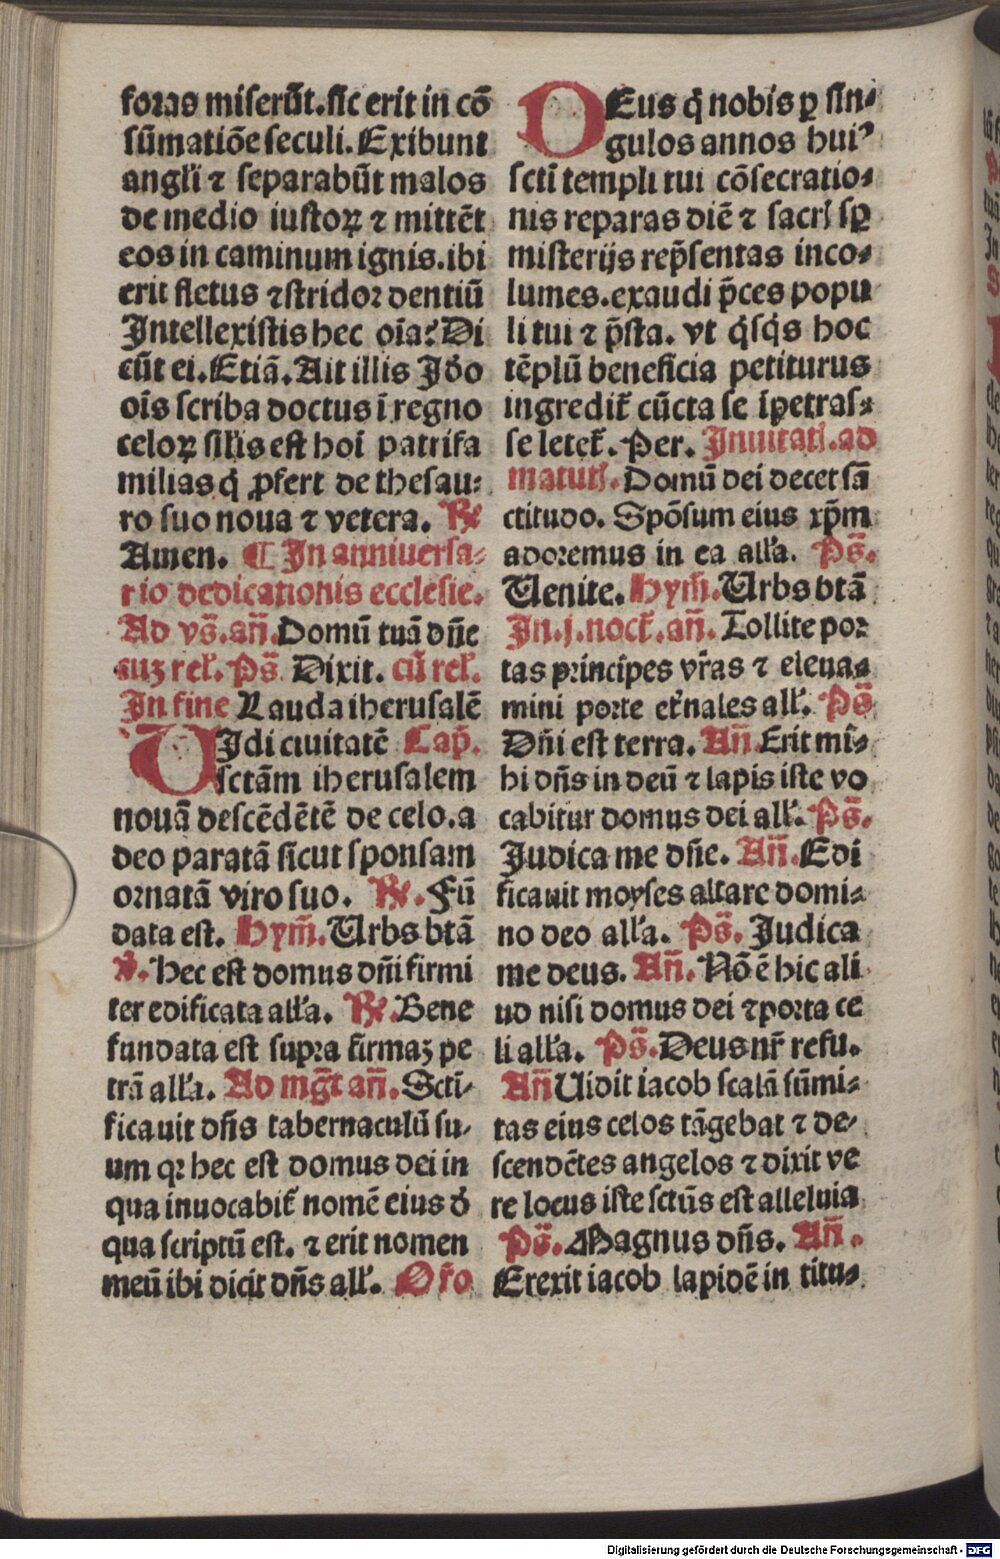 foras miserūt. sic erit in cō
sūmatiōe seculi. Exibunt
angl'i ⁊ separabūt malos
de medio iustoꝝ ⁊ mittēt
eos in caminum ignis. ibi
erit fletus ⁊ stridor dentiū
Intellexistis hec oīa? Di
cūt ei. Etiā. Ait illis Idō
oīs scriba doctus ī regno
celoꝝ sil'is est hoī patrifa
milias q̄ ꝓfert de thesau-
ro suo noua ⁊ vetera. ℟
Amen. ¶ In anniuersa-
rio dedicationis ecclesie.
Ad vs̄. an̄. Domū tuā dn̄e
cuꝫ rel'. Ps̄ Dixit. cū rel'.
In fine Lauda iherusalē
UIdi ciuitatē Cap̄.
sctām iherusalem
nouā descēdētē de celo. a
deo paratā sicut sponsam
ornatā viro suo. ℟. Fū
data est. Hym̄. Urbs btā
℣. Hec est domus dn̄i firmi
ter edificata all'a. ℟. Bene
fundata est supra firmaꝫ pe
trā all'a. Ad mḡt an̄. Scti-
ficauit dn̄s tabernaculū su-
um qꝛ hec est domus dei in
qua inuocabit̄ nomē eius d̄
qua scriptū est. ⁊ erit nomen
meū ibi dicit dn̄s all'. Or̄o
DEus q̄ nobis ꝑ sin-
gulos annos hui⁹
sctī templi tui cōsecratio-
nis reparas diē ⁊ sacrꝭ sꝑ
misterijs rep̄sentas inco-
lumes. exaudi p̄ces popu
li tui ⁊ p̄sta. vt q̄sq̄s hoc
tēplū beneficia petiturus
ingredit̄ cūcta se īpetras-
se letet̄. Per. Inuitatꝭ. ad
matutꝭ. Domū dei decet sā
ctitudo. Spōsum eius xp̄m
adoremus in ea all'a. Ps̄.
Uenite. Hym̄. Urbs btā
In. j. noct̄. an̄. Tollite por-
tas principes vr̄as ⁊ eleua-
mini porte et̄nales all'. Ps̄
Dn̄i est terra. An̄. Erit mi-
hi dn̄s in deū ⁊ lapis iste vo
cabitur domus dei all'. Ps̄.
Judica me dn̄e. An̄. Edi
ficauit moyses altare domi-
no deo all'a. Ps̄. Judica
me deus. An̄. Nō ē hic ali
ud nisi domus dei ⁊ porta ce
li all'a. Ps̄. Deus nr̄ refu.
An̄ Uidit iacob scalā sūmi-
tas eius celos tāgebat ⁊ de-
scendētes angelos ⁊ dixit ve
re locus iste sctūs est alleluia
Ps̄. Magnus dn̄s. An̄.
Erexit iacob lapidē in titu-
Digitalisierung gefördert durch die Deutsche Forschungsgemeinschaft - DFG